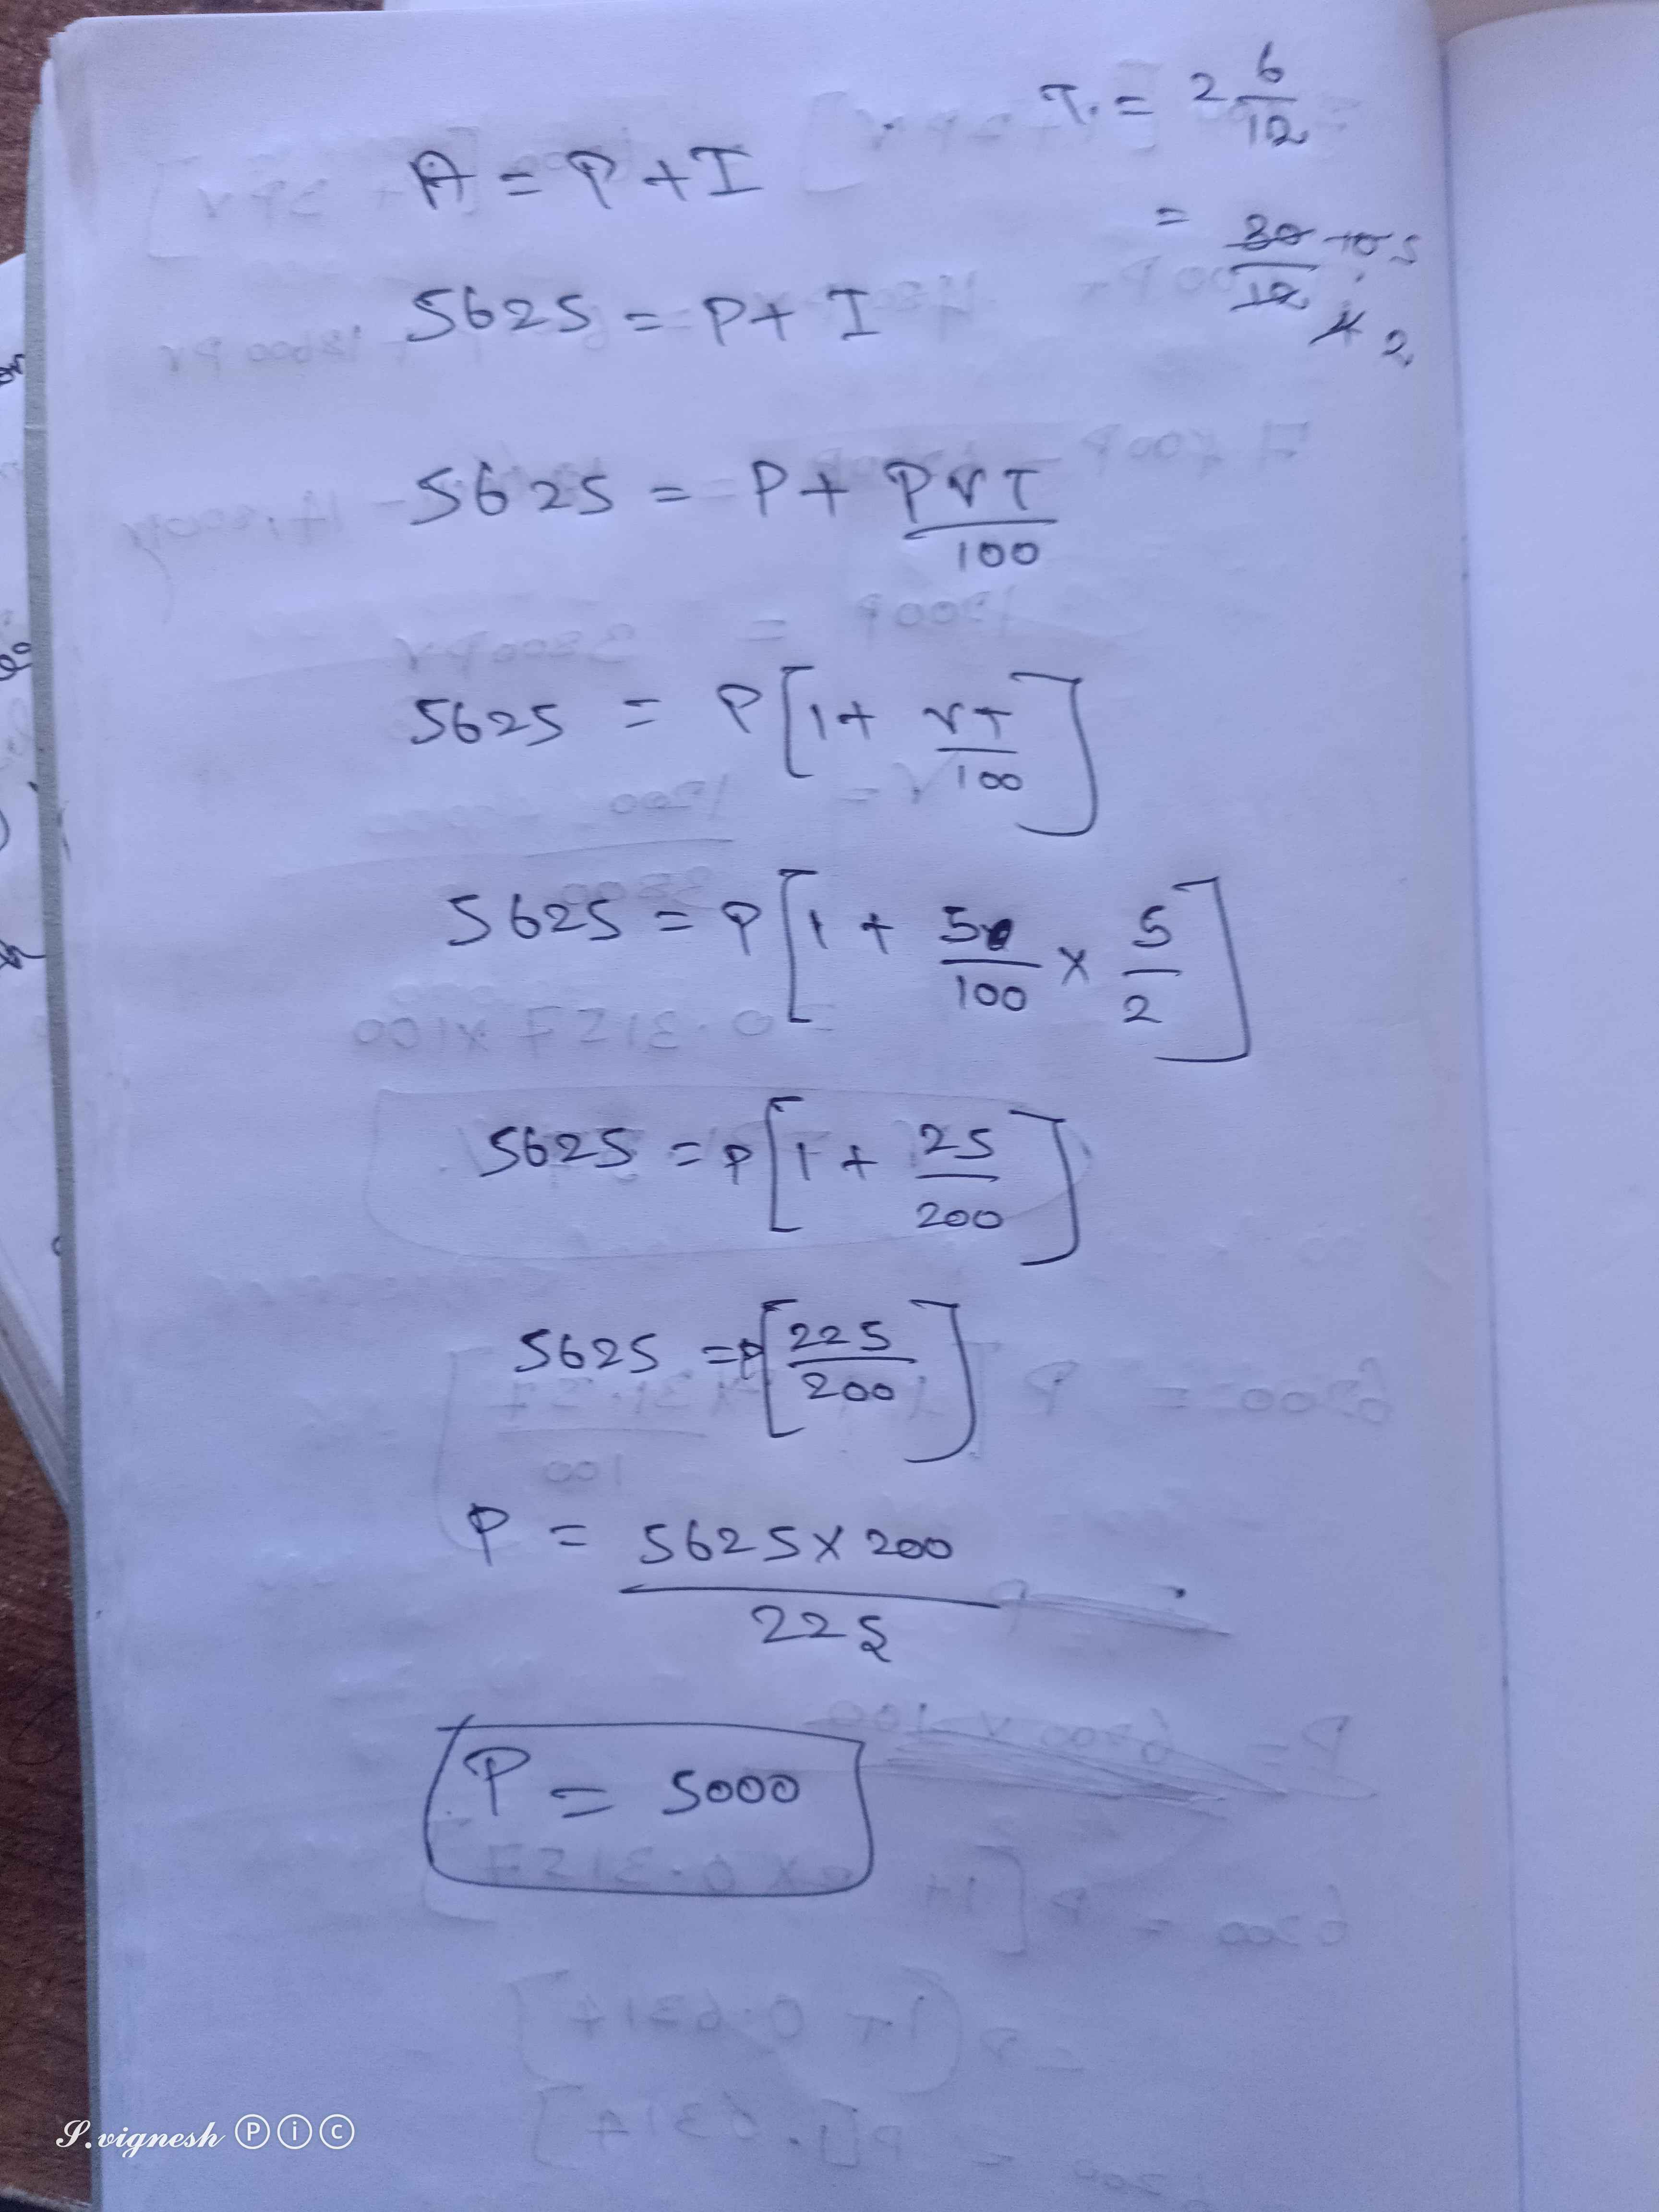 T. = 2 6/12
A = P + I
= 30/12 10 5 / 4 2
5625 = P + I
5625 = P + PrT/100
5625 = P[1 + rT/100]
5625 = P[1 + 5/100 × 5/2]
5625 = P[1 + 25/200]
5625 = P[225/200]
P = 5625 × 200 / 225
P = 5000
S.vignesh Ⓟⓘⓒ